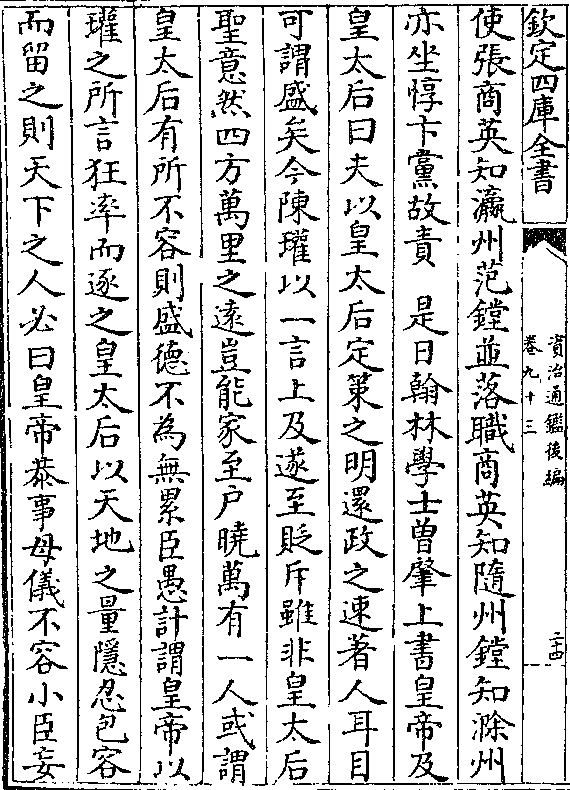 欽定四庫全書
資治通鑑後編
卷九十三
二十四
使張商英知瀛州范鏜並落職商英知隨州鏜知滁州
亦坐惇卞黨故責　是日翰林學士曾肇上書皇帝及
皇太后曰夫以皇太后定策之明還政之速著人耳目
可謂盛矣今陳瓘以一言上及遂至貶斥雖非皇太后
聖意然四方萬里之遠豈能家至户曉萬有一人或謂
皇太后有所不容則盛德不為無累臣愚計謂皇帝以
瓘之所言狂率而逐之皇太后以天地之量隱忍包容
而留之則天下之人必曰皇帝恭事母儀不容小臣妄